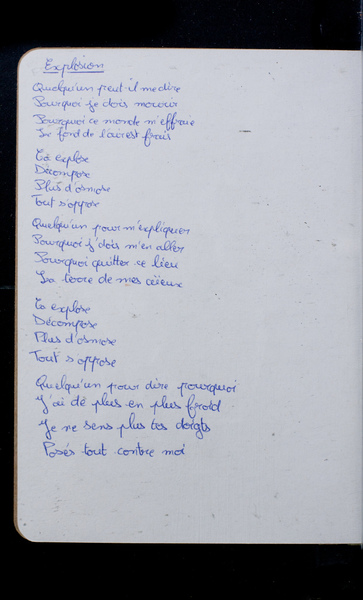 Explosion
Quelqu'un peut-il me dire
Pourquoi je dois mourir
Pourquoi ce monde m'effraie
Le fond de l'air est frais
Ca explose
Décompose
Plus d'osmose
Tout s'oppose
Quelqu'un pour m'expliquer
Pourquoi j'dois m'en aller
Pourquoi quitter ce lieu
La terre de mes aïeux
Ca explose
Décompose
Plus d'osmose
Tout s'oppose
Quelqu'un pour dire pourquoi
J'ai de plus en plus froid
Je ne sens plus tes doigts
Posés tout contre moi